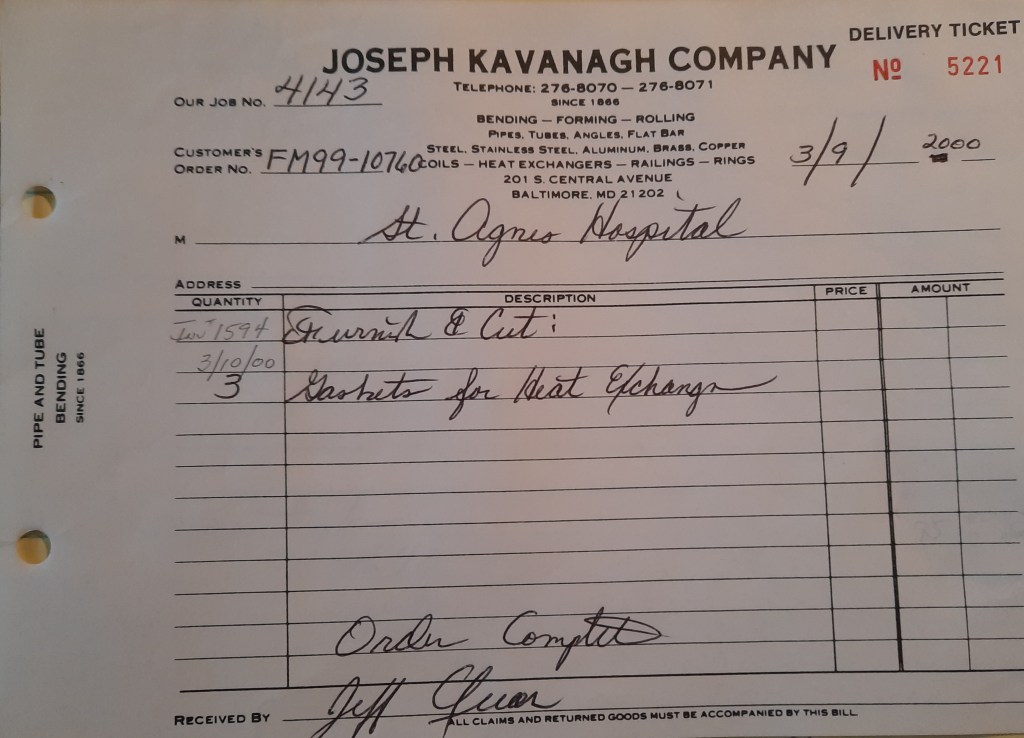 DELIVERY TICKET
JOSEPH KAVANAGH COMPANY
Nº 5221
TELEPHONE: 276-8070 — 276-8071
SINCE 1866
OUR JOB NO. 4143
BENDING — FORMING — ROLLING
PIPES, TUBES, ANGLES, FLAT BAR
STEEL, STAINLESS STEEL, ALUMINUM, BRASS, COPPER
CUSTOMER'S
ORDER NO. FM99-10760
COILS — HEAT EXCHANGERS — RAILINGS — RINGS
3/9/ 2000
201 S. CENTRAL AVENUE
BALTIMORE, MD 21202
M St. Agnes Hospital
ADDRESS
QUANTITY DESCRIPTION PRICE AMOUNT
Inv 1594 Furnish & Cut:
3/10/00
3 Gaskets for Heat Exchanger
Order Complete
RECEIVED BY Jeff
ALL CLAIMS AND RETURNED GOODS MUST BE ACCOMPANIED BY THIS BILL
PIPE AND TUBE
BENDING
SINCE 1866